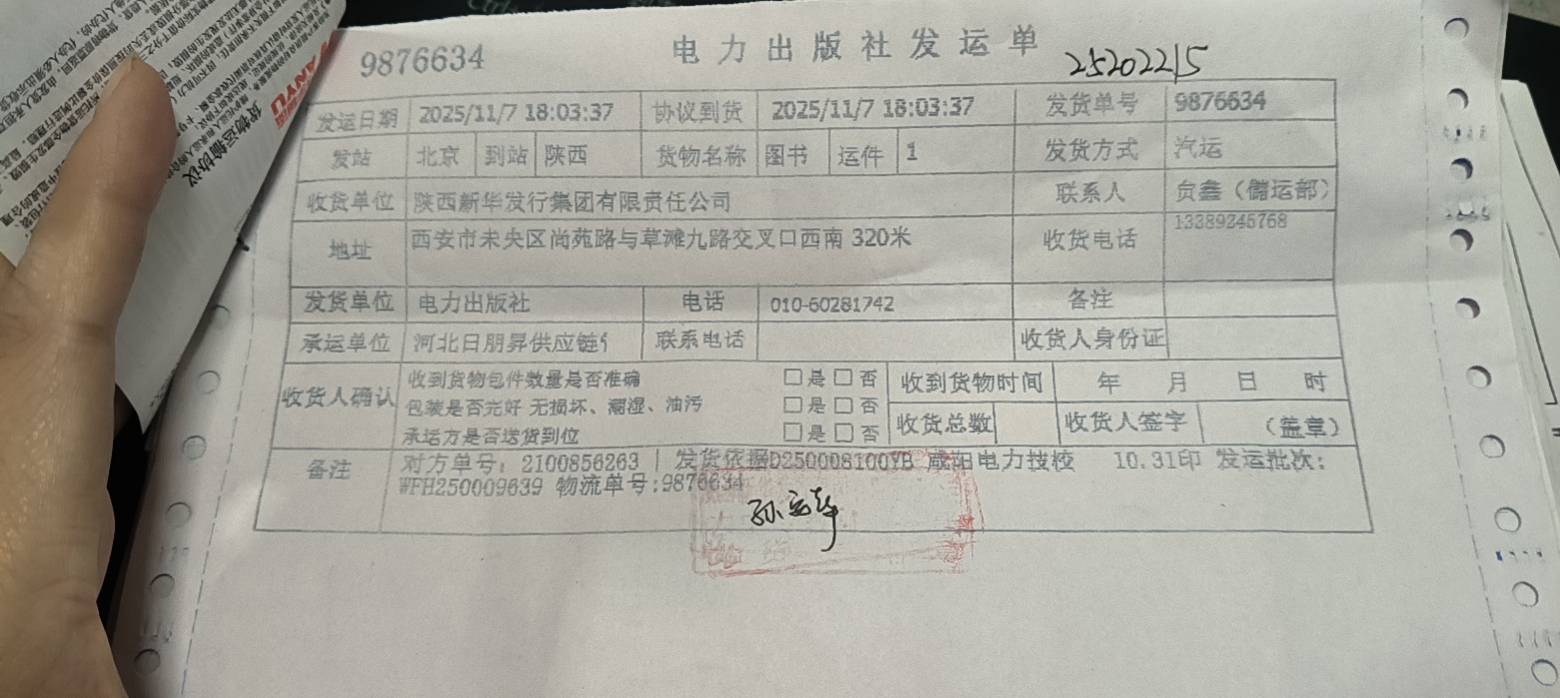 9876634
电力出版社发运单
25202215
发运日期 2025/11/7 18:03:37 协议到货 2025/11/7 18:03:37 发货单号 9876634
发站 北京 到站 陕西 货物名称 图书 运件 1 发货方式 汽运
收货单位 陕西新华发行集团有限责任公司 联系人 贠鑫（储运部）
地址 西安市未央区尚苑路与草滩九路交叉口西南 320米 收货电话 13389245768
发货单位 电力出版社 电话 010-60281742 备注
承运单位 河北日朋昇供应链 联系电话 收货人身份证
收货人确认 收到货物包件数量是否准确 □是□否 收到货物时间 年 月 日 时
包装是否完好 无损坏、潮湿、油污 □是□否
承运方是否送货到位 □是□否 收货总数 收货人签字 （盖章）
备注 对方单号：2100856263 | 发货依据D250008100YB 咸阳电力技校 10.31印 发运批次：
WFH250009639 物流单号:9876634
货物运输协议